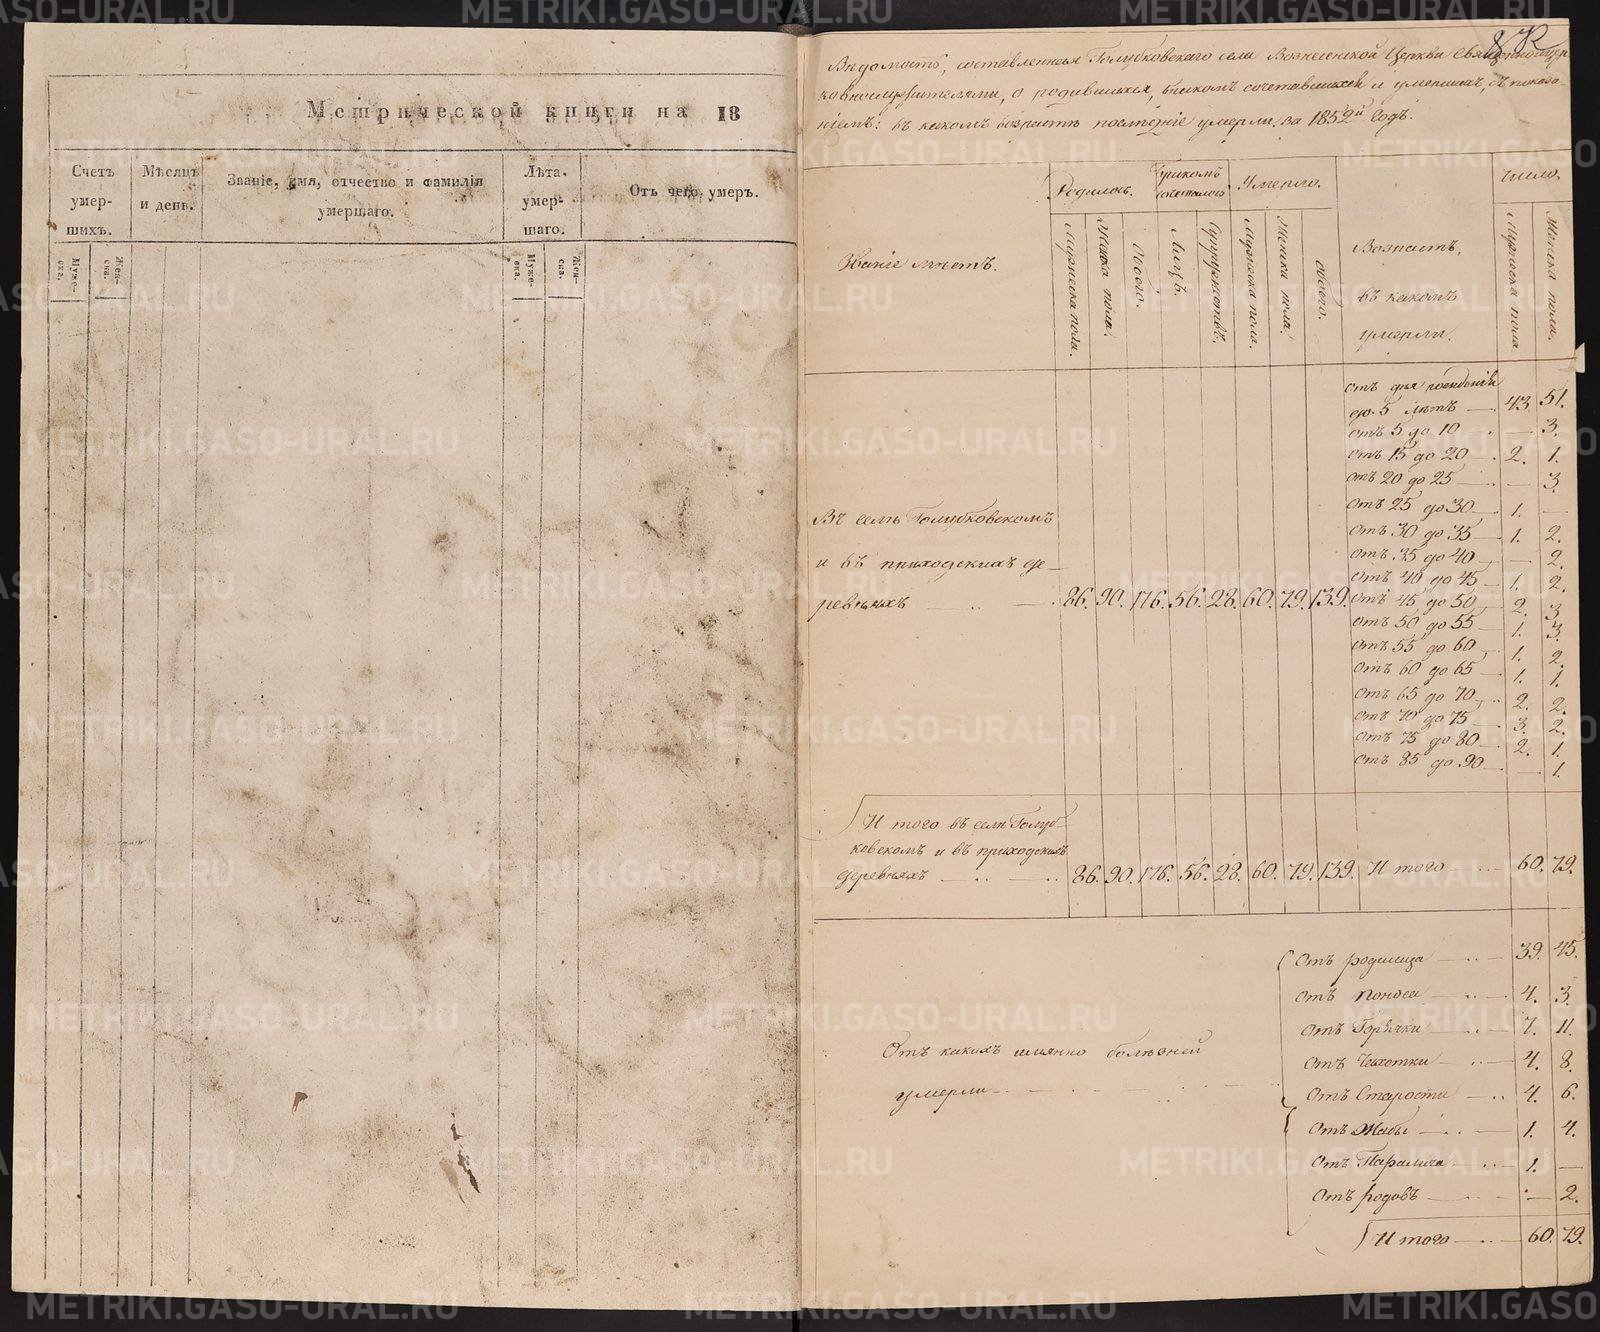 Метрической книги на 18
Счетъ умер-шихъ.
Муже-ска.
Жен-ска.
Мѣсяцъ и день.
Званіе, имя, отчество и фамилія умершаго.
Лѣта умер-шаго.
Муже-ска.
Жен-ска.
Отъ чего умеръ.
Вѣдомость, составленная Голубковскаго села Вознесенской Церкви Священноцер-
ковнослужителями, о родившихся, бракомъ сочетавшихся и умершихъ, съ показа-
ніемъ: въ какомъ возрастѣ послѣдніе умерли, за 1852й годъ.
Званіе мѣстъ.
Родилось.
Мужеска пола.
Женска пола.
Обоего.
Бракомъ сочеталось
Лицъ.
Супружествъ.
Умерло.
Мужеска пола.
Женска пола.
Обоего.
Возрастъ,
въ какомъ
умерли.
Число.
Мужеска пола
Женска пола.
Отъ дня рожденія
до 5 лѣтъ 43. 51.
Отъ 5 до 10 — 3.
Отъ 15 до 20 2. 1.
Отъ 20 до 25 — 3.
Отъ 25 до 30 1. —
Отъ 30 до 35 1. 2.
Отъ 35 до 40 — 2.
Отъ 40 до 45 1. 2.
Отъ 45 до 50 2. 3.
Отъ 50 до 55 1. 3.
Отъ 55 до 60 1. 2.
Отъ 60 до 65 1. 1.
Отъ 65 до 70 2. 2.
Отъ 70 до 75 3. 2.
Отъ 75 до 80 2. 1.
Отъ 85 до 90 — 1.
Въ селѣ Голубковскомъ
и въ приходскихъ де-
ревняхъ 86. 90. 176. 56. 28. 60. 79. 139.
Итого въ селѣ Голуб-
ковскомъ и въ приходскихъ
деревняхъ 86. 90. 176. 56. 28. 60. 79. 139. Итого 60. 79.
Отъ какихъ имянно болѣзней
умерли
Отъ родимца 39. 45.
Отъ поноса 4. 3.
Отъ Горячки 7. 11.
Отъ Чахотки 4. 8.
Отъ Старости 4. 6.
Отъ Жабы 1. 4.
Отъ Паралича 1. —
Отъ родовъ — 2.
Итого 60. 79.
METRIKI.GASO-URAL.RU